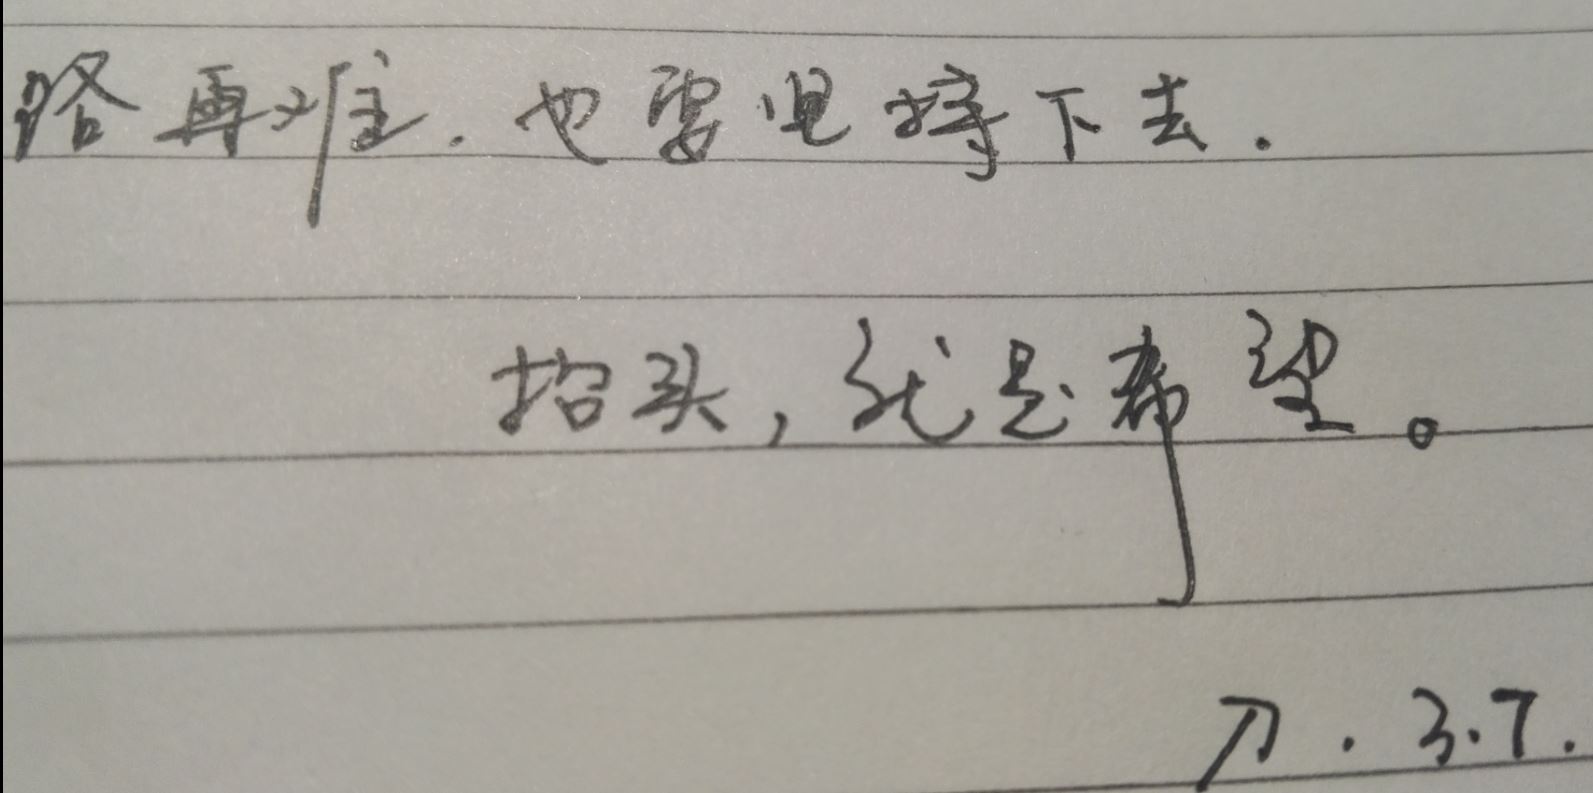 路再难.也要坚持下去.
抬头,就是希望。
刀.3.7.